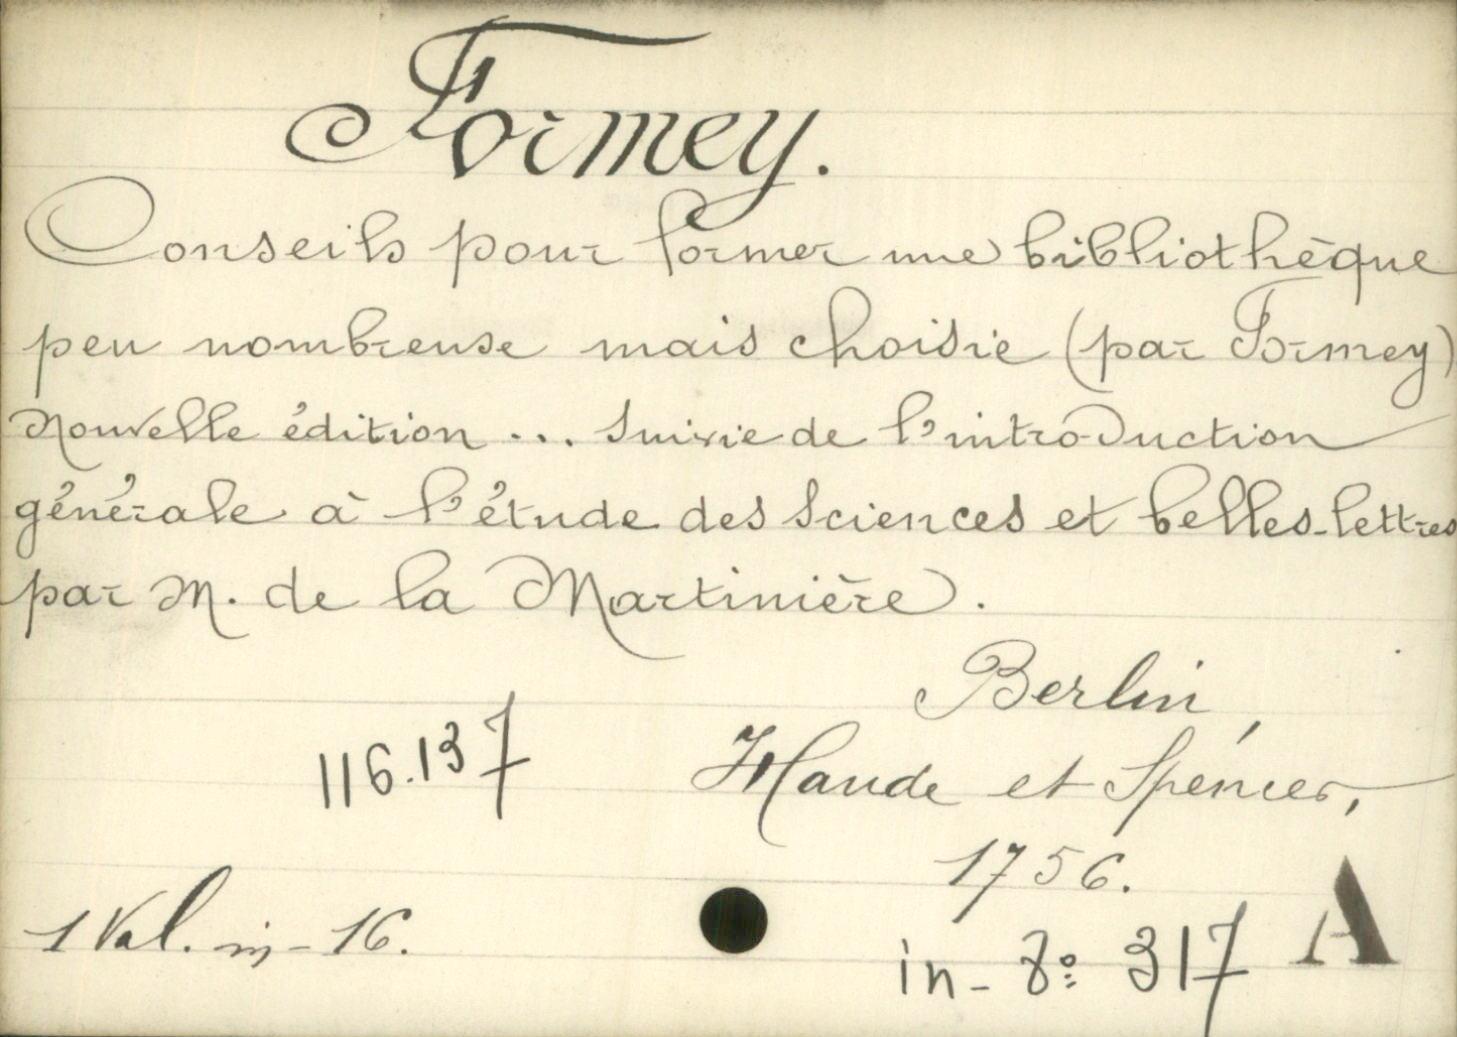 Formey.
Conseils pour former une bibliothèque
peu nombreuse mais choisie (par Formey)
Nouvelle édition ... suivie de l'introduction
générale à l'étude des sciences et belles-lettres
par M. de la Martinière.
Berlin,
116.137 Haude et Spener,
1756.
1 Vol. in-16.
in-8º 317 A